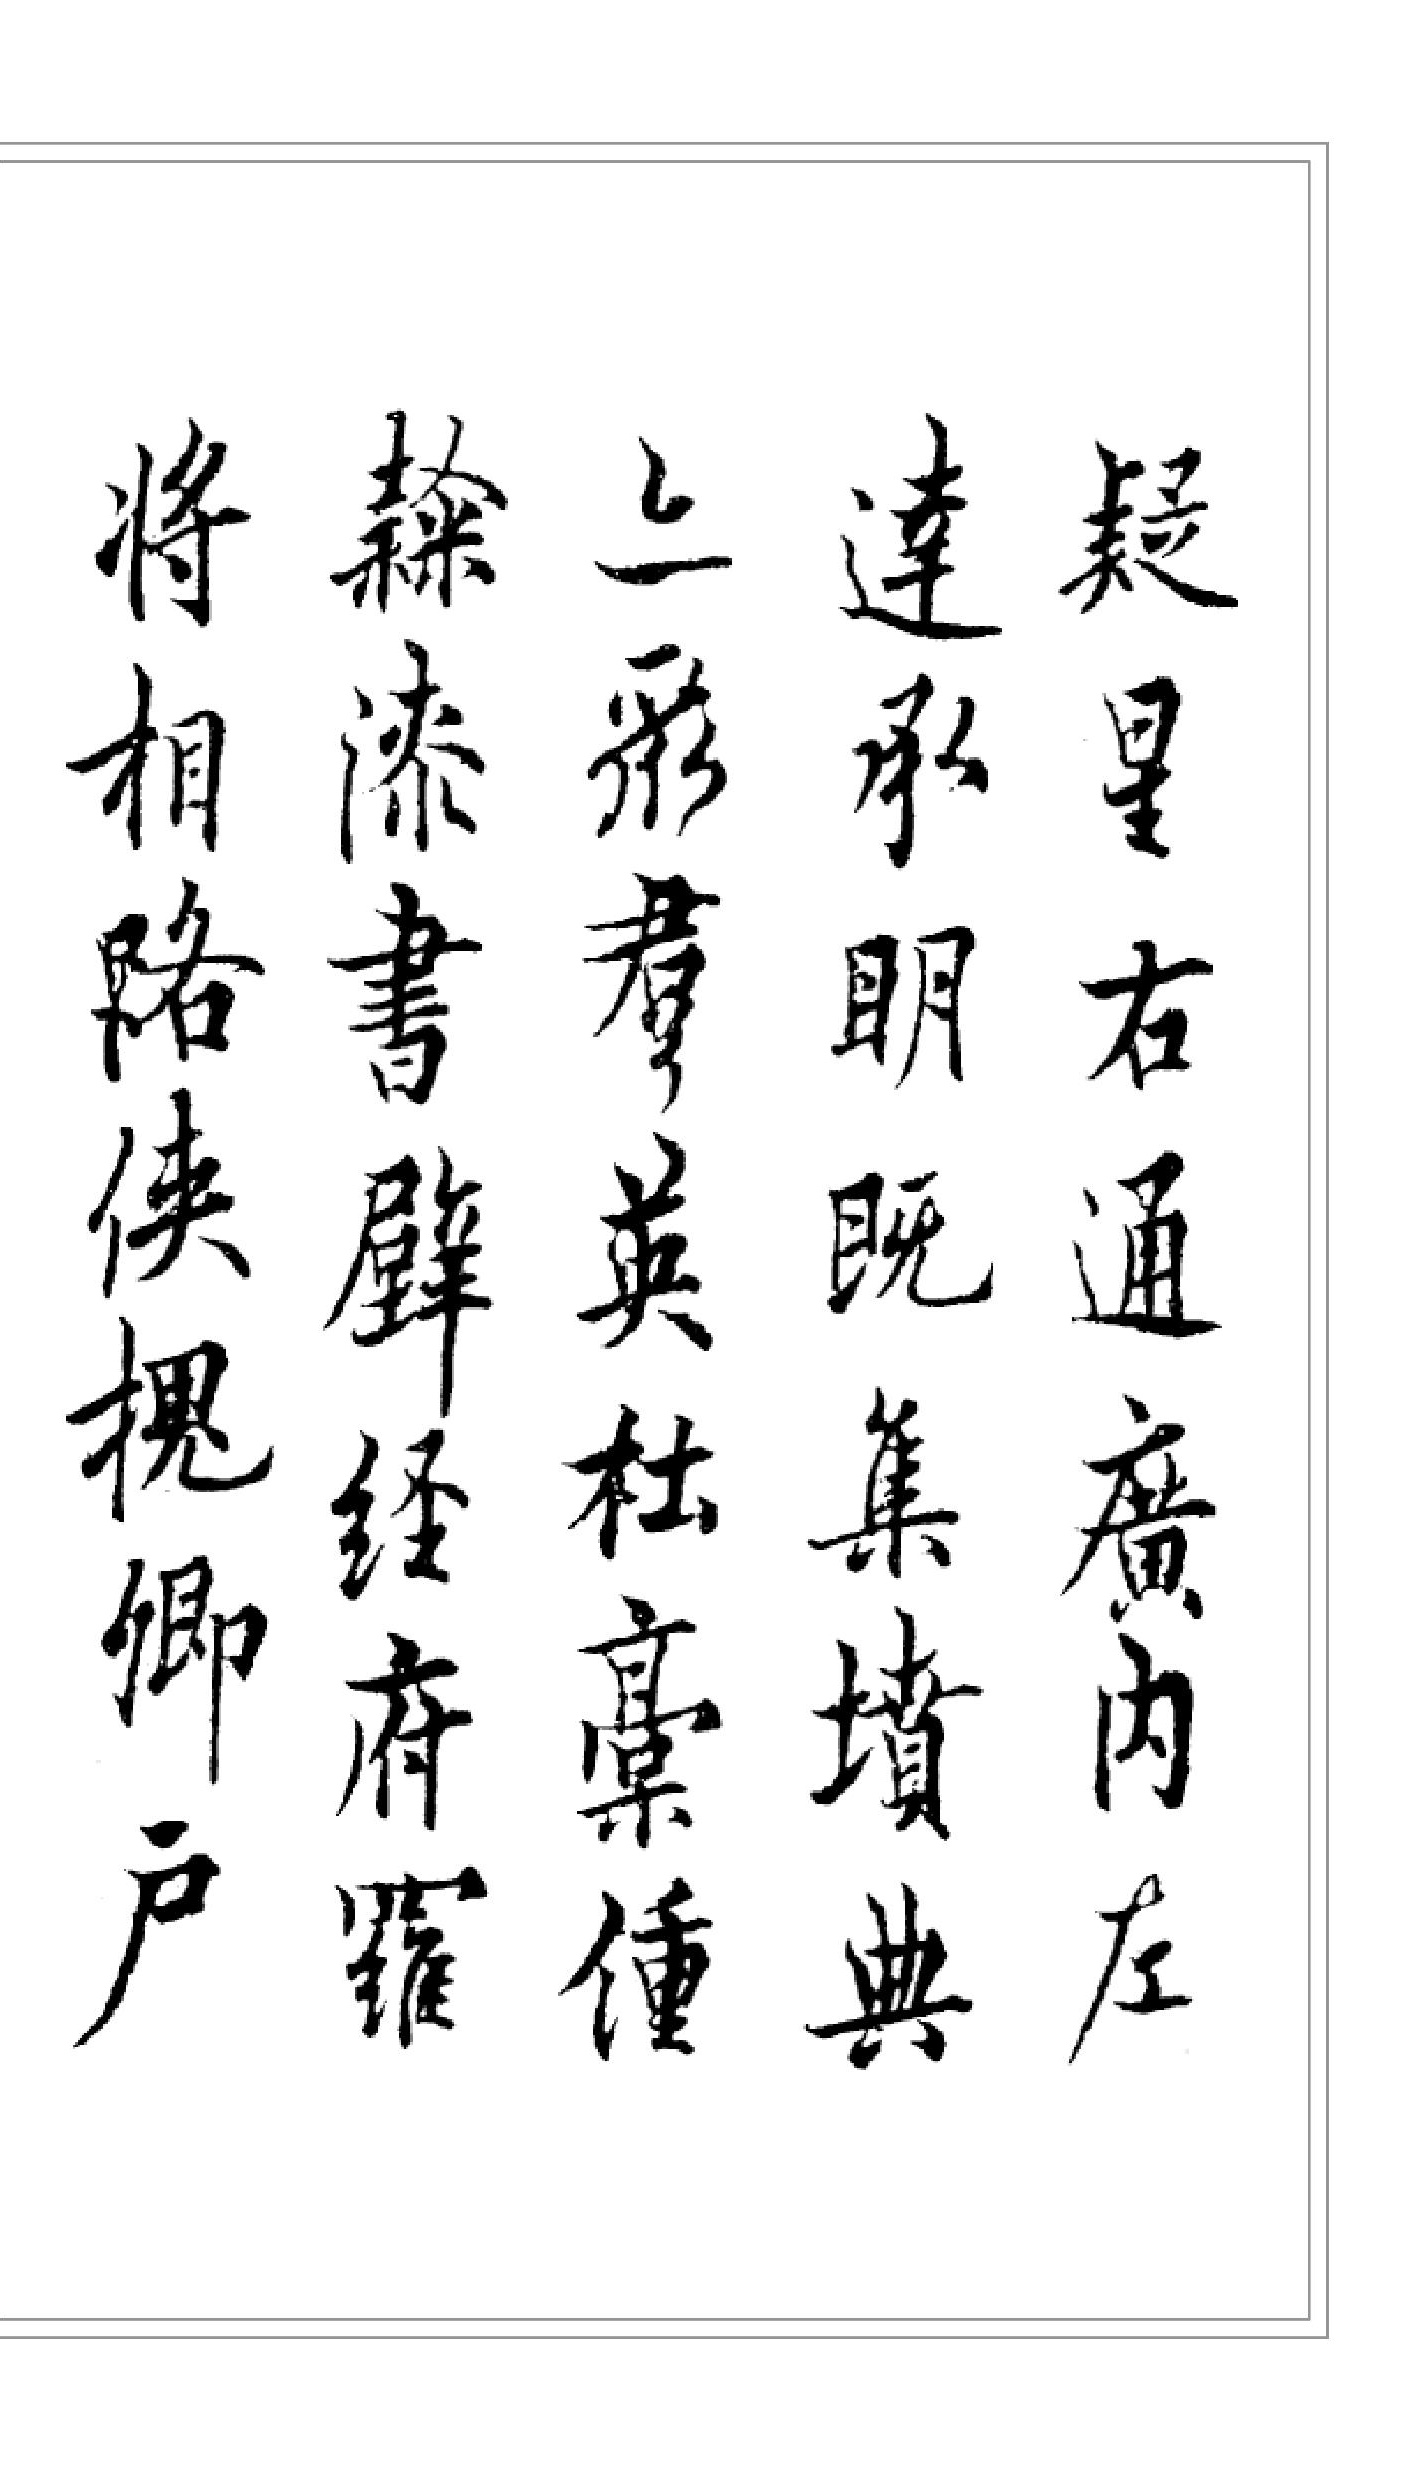 疑星右通廣内左
達承明既集墳典
亦聚群英杜稾鍾
隸漆書壁経府羅
将相路俠槐卿户